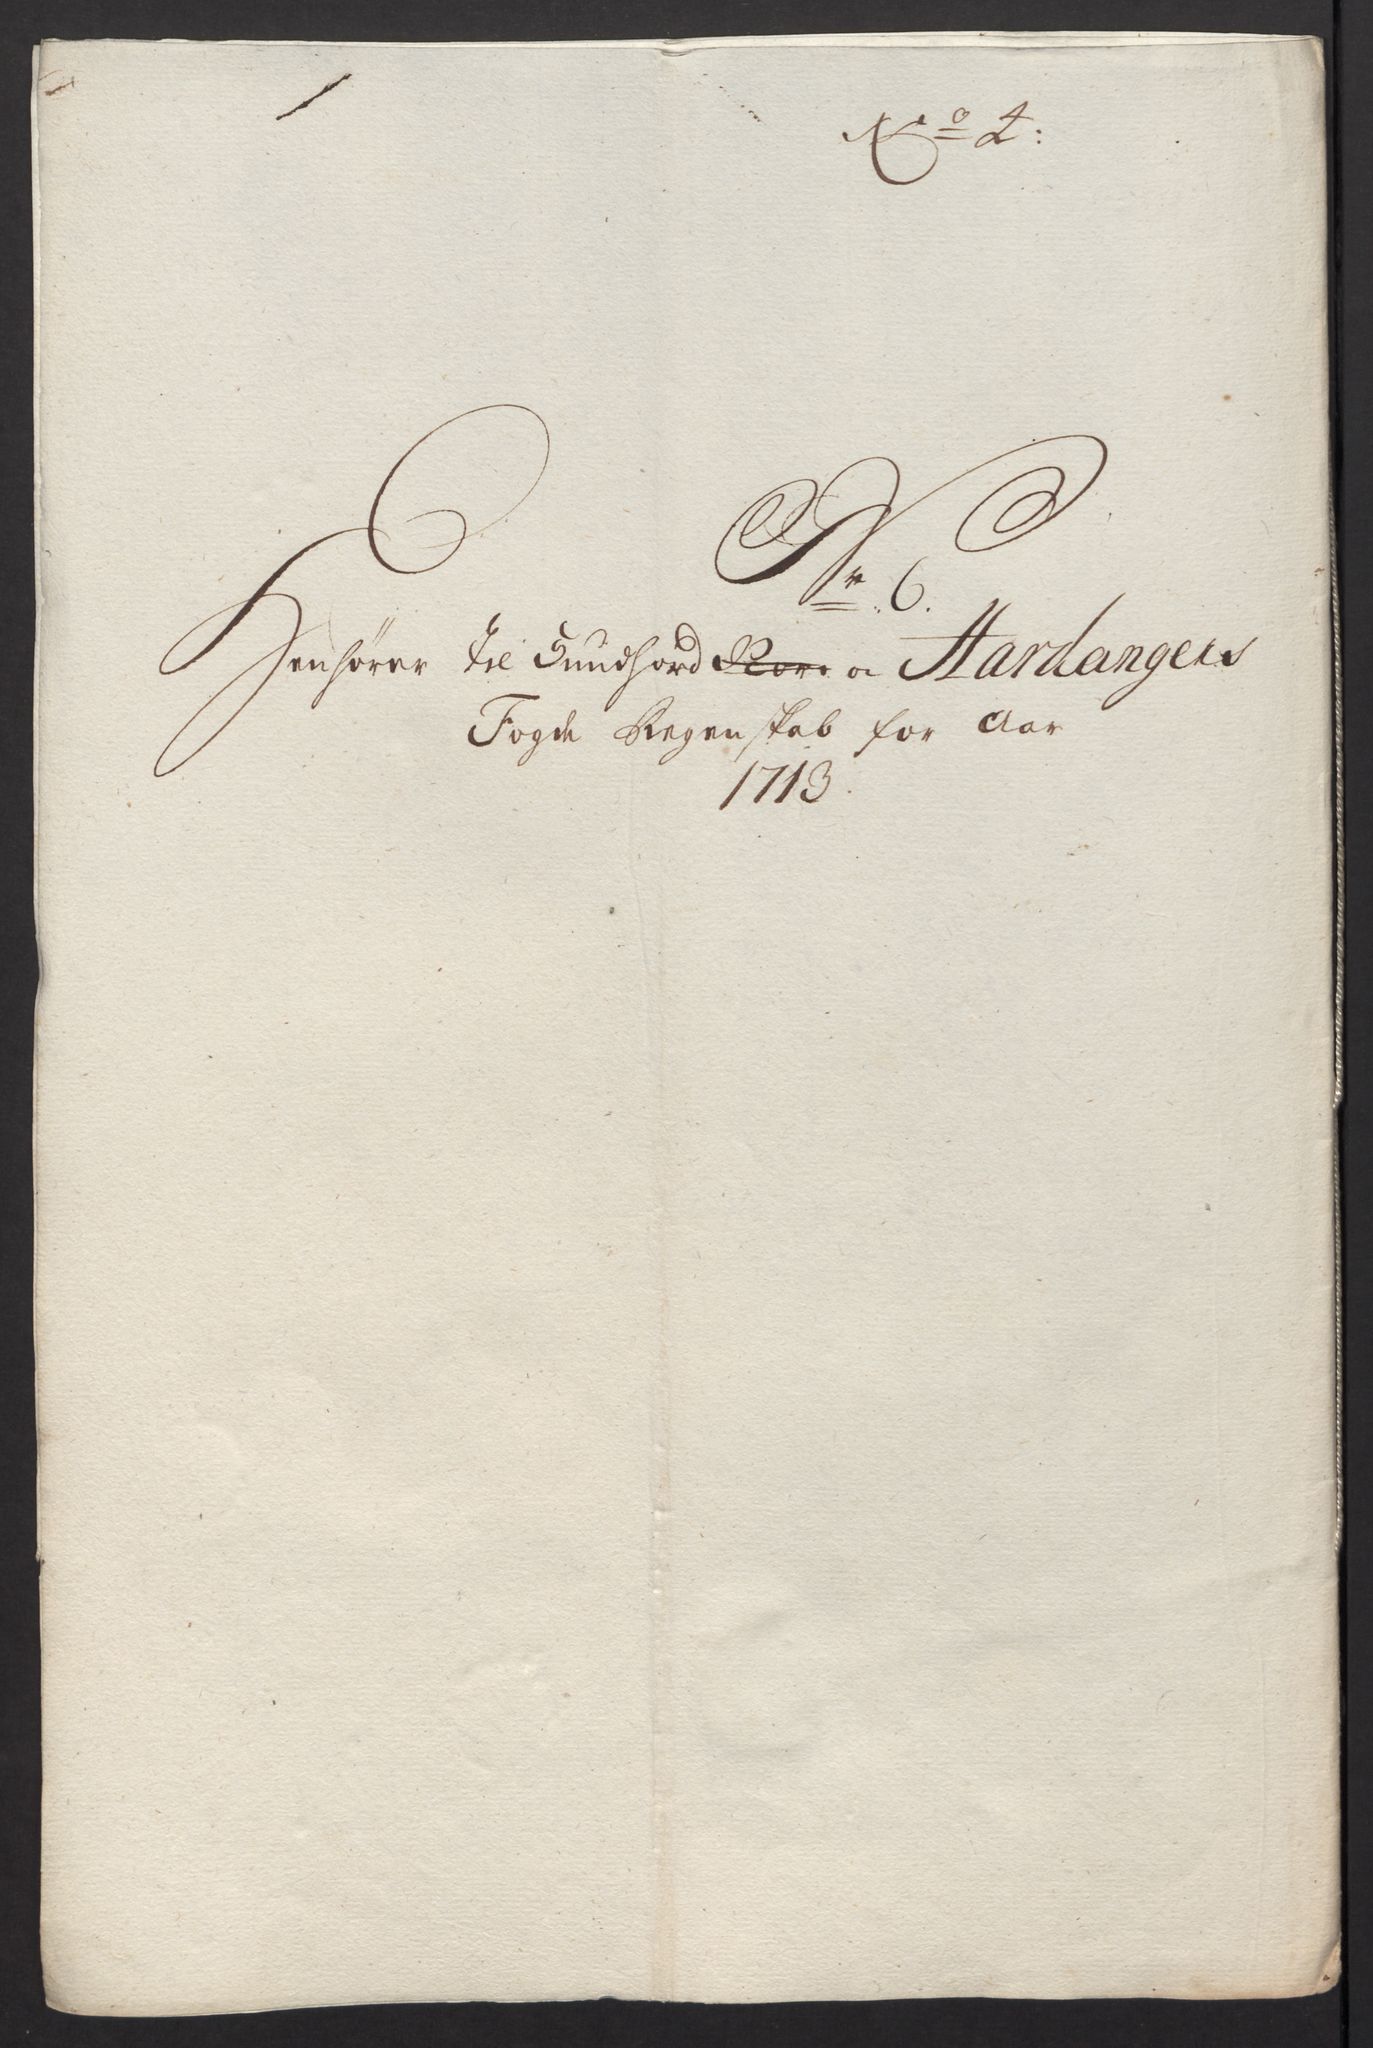 No 2:
Nr. 6.
Henhører til Sundhord Nor. o Hardangers
Fogde Regenskab for Aar
1713.